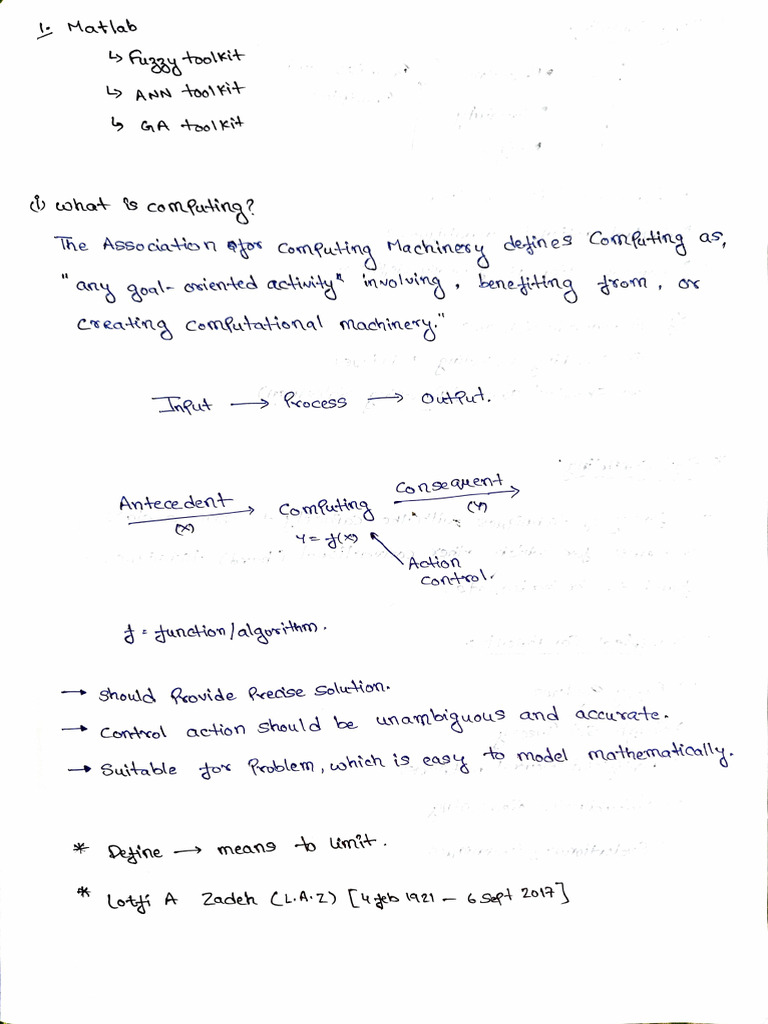 1. Matlab
↳ Fuzzy toolkit
↳ ANN toolkit
↳ GA toolkit
① What is computing?
The Association for Computing Machinery defines Computing as,
"any goal-oriented activity" involving, benefiting from, or
creating computational machinery."
Input → Process → Output.
Antecedent (X) → Computing Y = f(x) Consequent (Y) →
Action control.
f = function/algorithm.
→ Should Provide Precise solution.
→ Control action should be unambiguous and accurate.
→ Suitable for Problem, which is easy to model mathematically.
* Define → means to limit.
* Lotfi A Zadeh (L.A.Z) [4 feb 1921 – 6 Sept 2017]